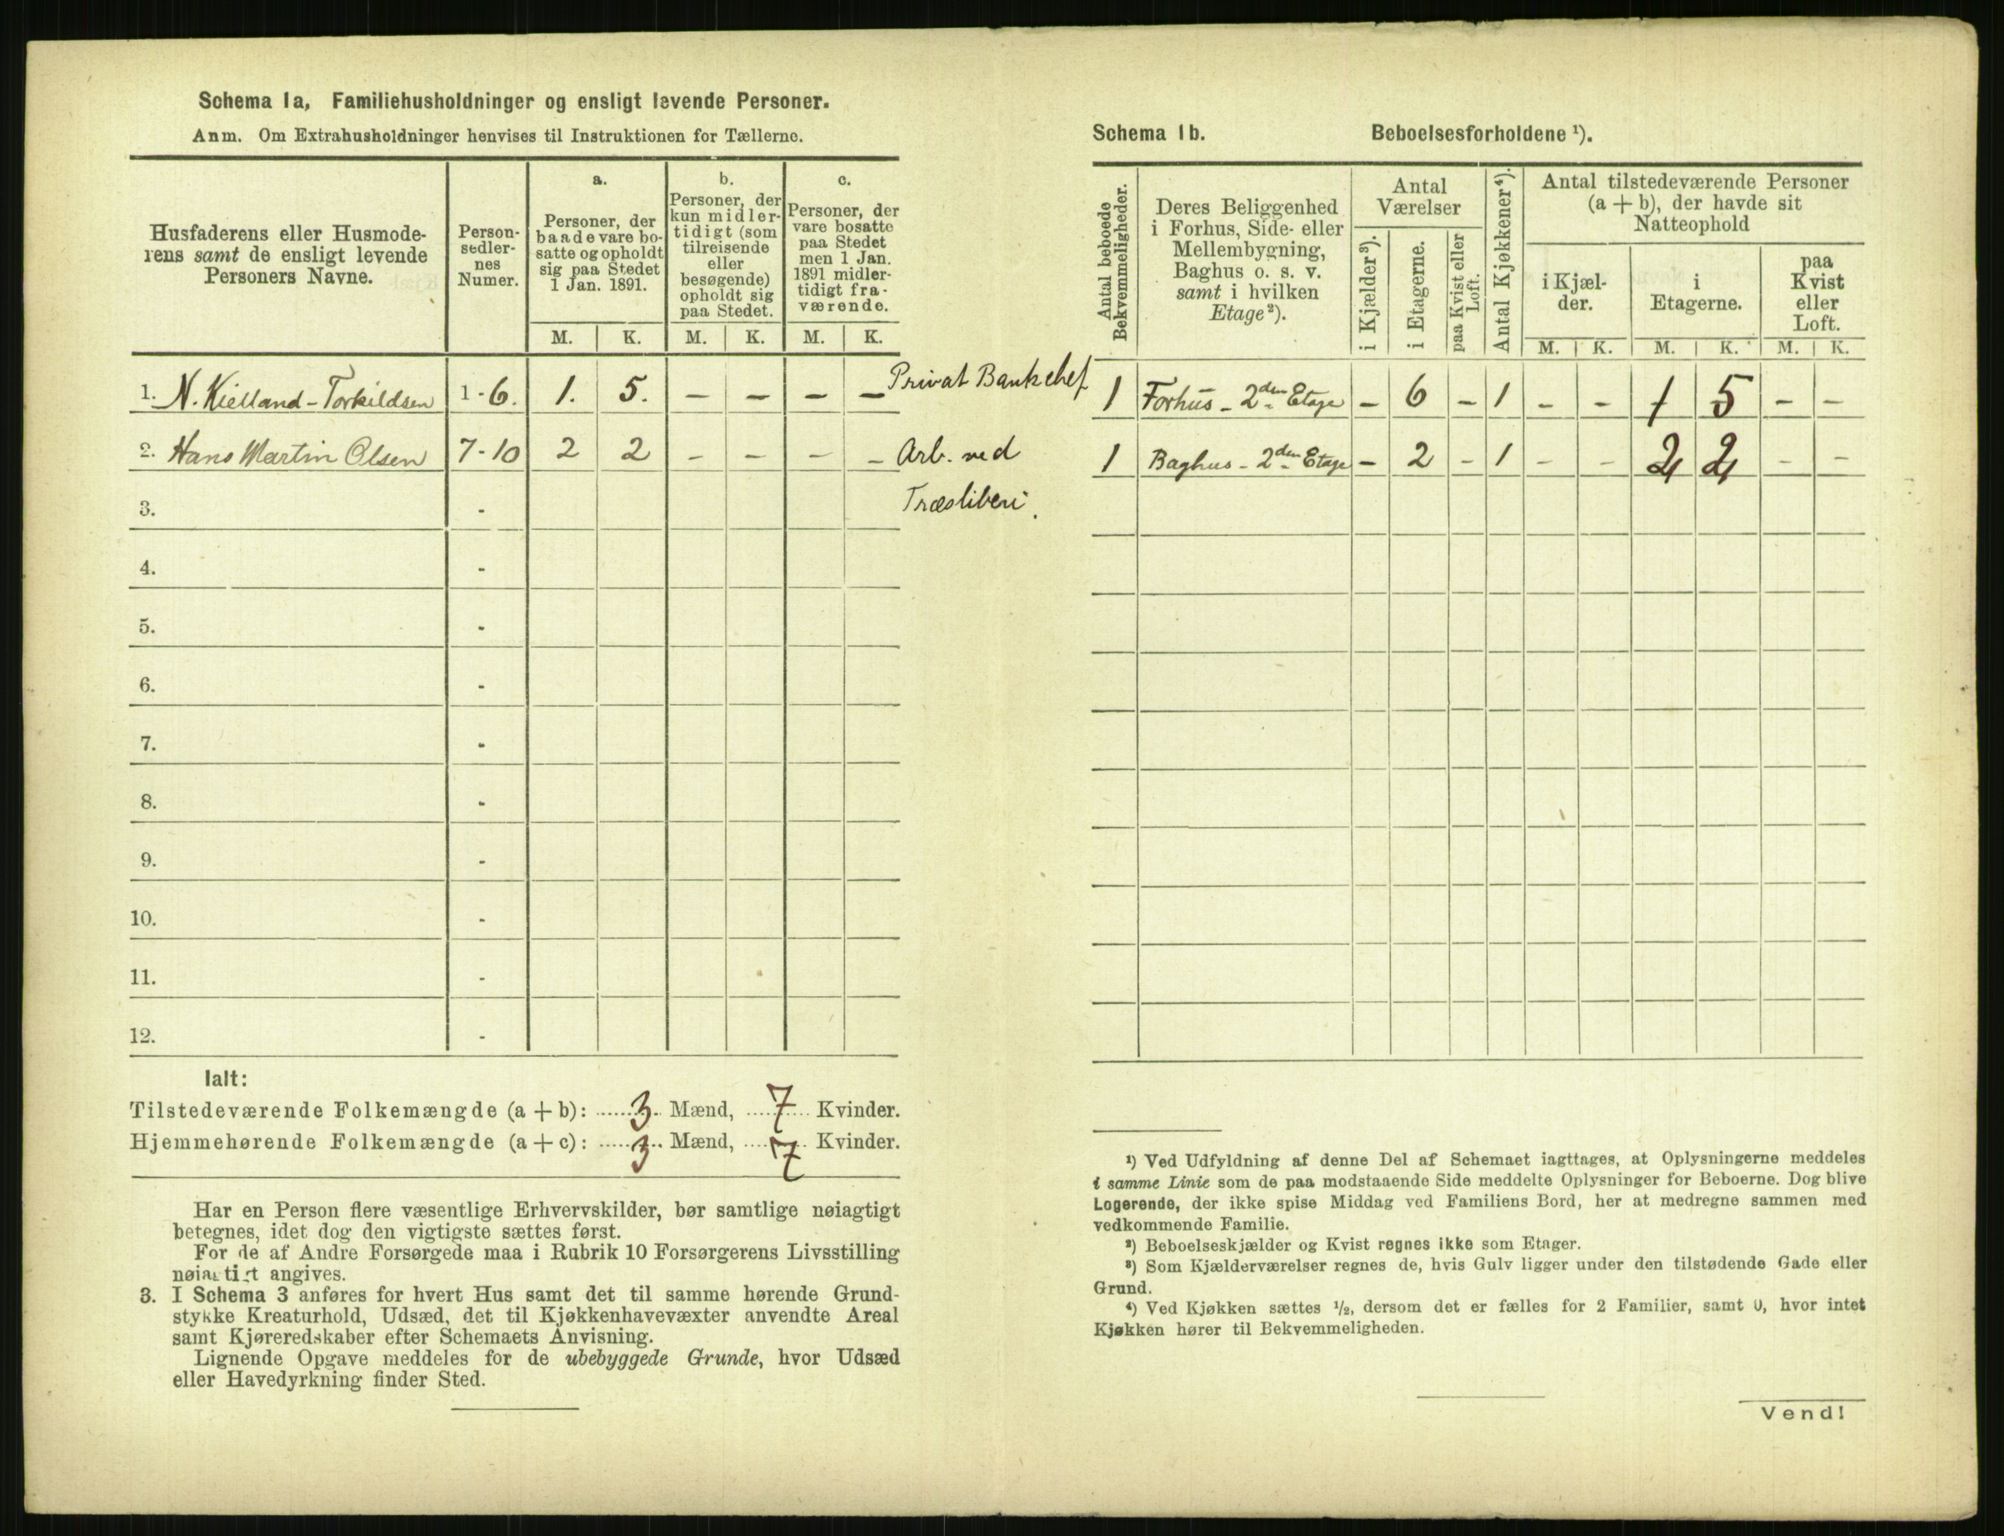 Schema 1a, Familiehusholdninger og ensligt levende Personer.
Anm. Om Extrahusholdninger henvises til Instruktionen for Tællerne.
Husfaderens eller Husmode-
rens samt de ensligt levende
Personers Navne.
Person-
sedler-
nes
Numer.
a.
Personer, der
baade vare bo-
satte og opholdt
sig paa Stedet
1 Jan. 1891.
b.
Personer, der
kun midler-
tidigt (som
tilreisende
eller
besøgende)
opholdt sig
paa Stedet.
c.
Personer, der
vare bosatte
paa Stedet
men 1 Jan.
1891 midler-
tidigt fra-
værende.
M. K. M. K. M. K.
1. N. Kielland-Torkildsen 1-6. 1. 5. – – – – Privat Bankchef
2. Hans Martin Olsen 7-10 2 2 – – – – Arb. ved
Træsliberi.
3. -
4. -
5. -
6. -
7. -
8. -
9. -
10. -
11. -
12. -
Ialt:
Tilstedeværende Folkemængde (a + b): 3 Mænd, 7 Kvinder.
Hjemmehørende Folkemængde (a + c): 3 Mænd, 7 Kvinder.
Har en Person flere væsentlige Erhvervskilder, bør samtlige nøiagtigt
betegnes, idet dog den vigtigste sættes først.
For de af Andre Forsørgede maa i Rubrik 10 Forsørgerens Livsstilling
nøiagtigt angives.
3. I Schema 3 anføres for hvert Hus samt det til samme hørende Grund-
stykke Kreaturhold, Udsæd, det til Kjøkkenhavevæxter anvendte Areal
samt Kjøreredskaber efter Schemaets Anvisning.
Lignende Opgave meddeles for de ubebyggede Grunde, hvor Udsæd
eller Havedyrkning finder Sted.
Schema 1b. Beboelsesforholdene ¹).
Antal beboede
Bekvemmeligheder.
Deres Beliggenhed
i Forhus, Side- eller
Mellembygning,
Baghus o. s. v.
samt i hvilken
Etage²).
Antal
Værelser
i Kjælder³).
i Etagerne.
paa Kvist eller
Loft.
Antal Kjøkkener⁴).
Antal tilstedeværende Personer
(a + b), der havde sit
Natteophold
i Kjæl-
der.
i
Etagerne.
paa
Kvist
eller
Loft.
M. K. M. K. M. K.
1 Forhus - 2den Etage – 6 – 1 – – 1 5 – –
1 Baghus - 2den Etage – 2 – 1 – – 2 2 – –
¹) Ved Udfyldning af denne Del af Schemaet iagttages, at Oplysningerne meddeles
i samme Linie som de paa modstaaende Side meddelte Oplysninger for Beboerne. Dog blive
Logerende, der ikke spise Middag ved Familiens Bord, her at medregne sammen med
vedkommende Familie.
²) Beboelseskjælder og Kvist regnes ikke som Etager.
³) Som Kjælderværelser regnes de, hvis Gulv ligger under den tilstødende Gade eller
Grund.
⁴) Ved Kjøkken sættes ½, dersom det er fælles for 2 Familier, samt 0, hvor intet
Kjøkken hører til Bekvemmeligheden.
Vend!